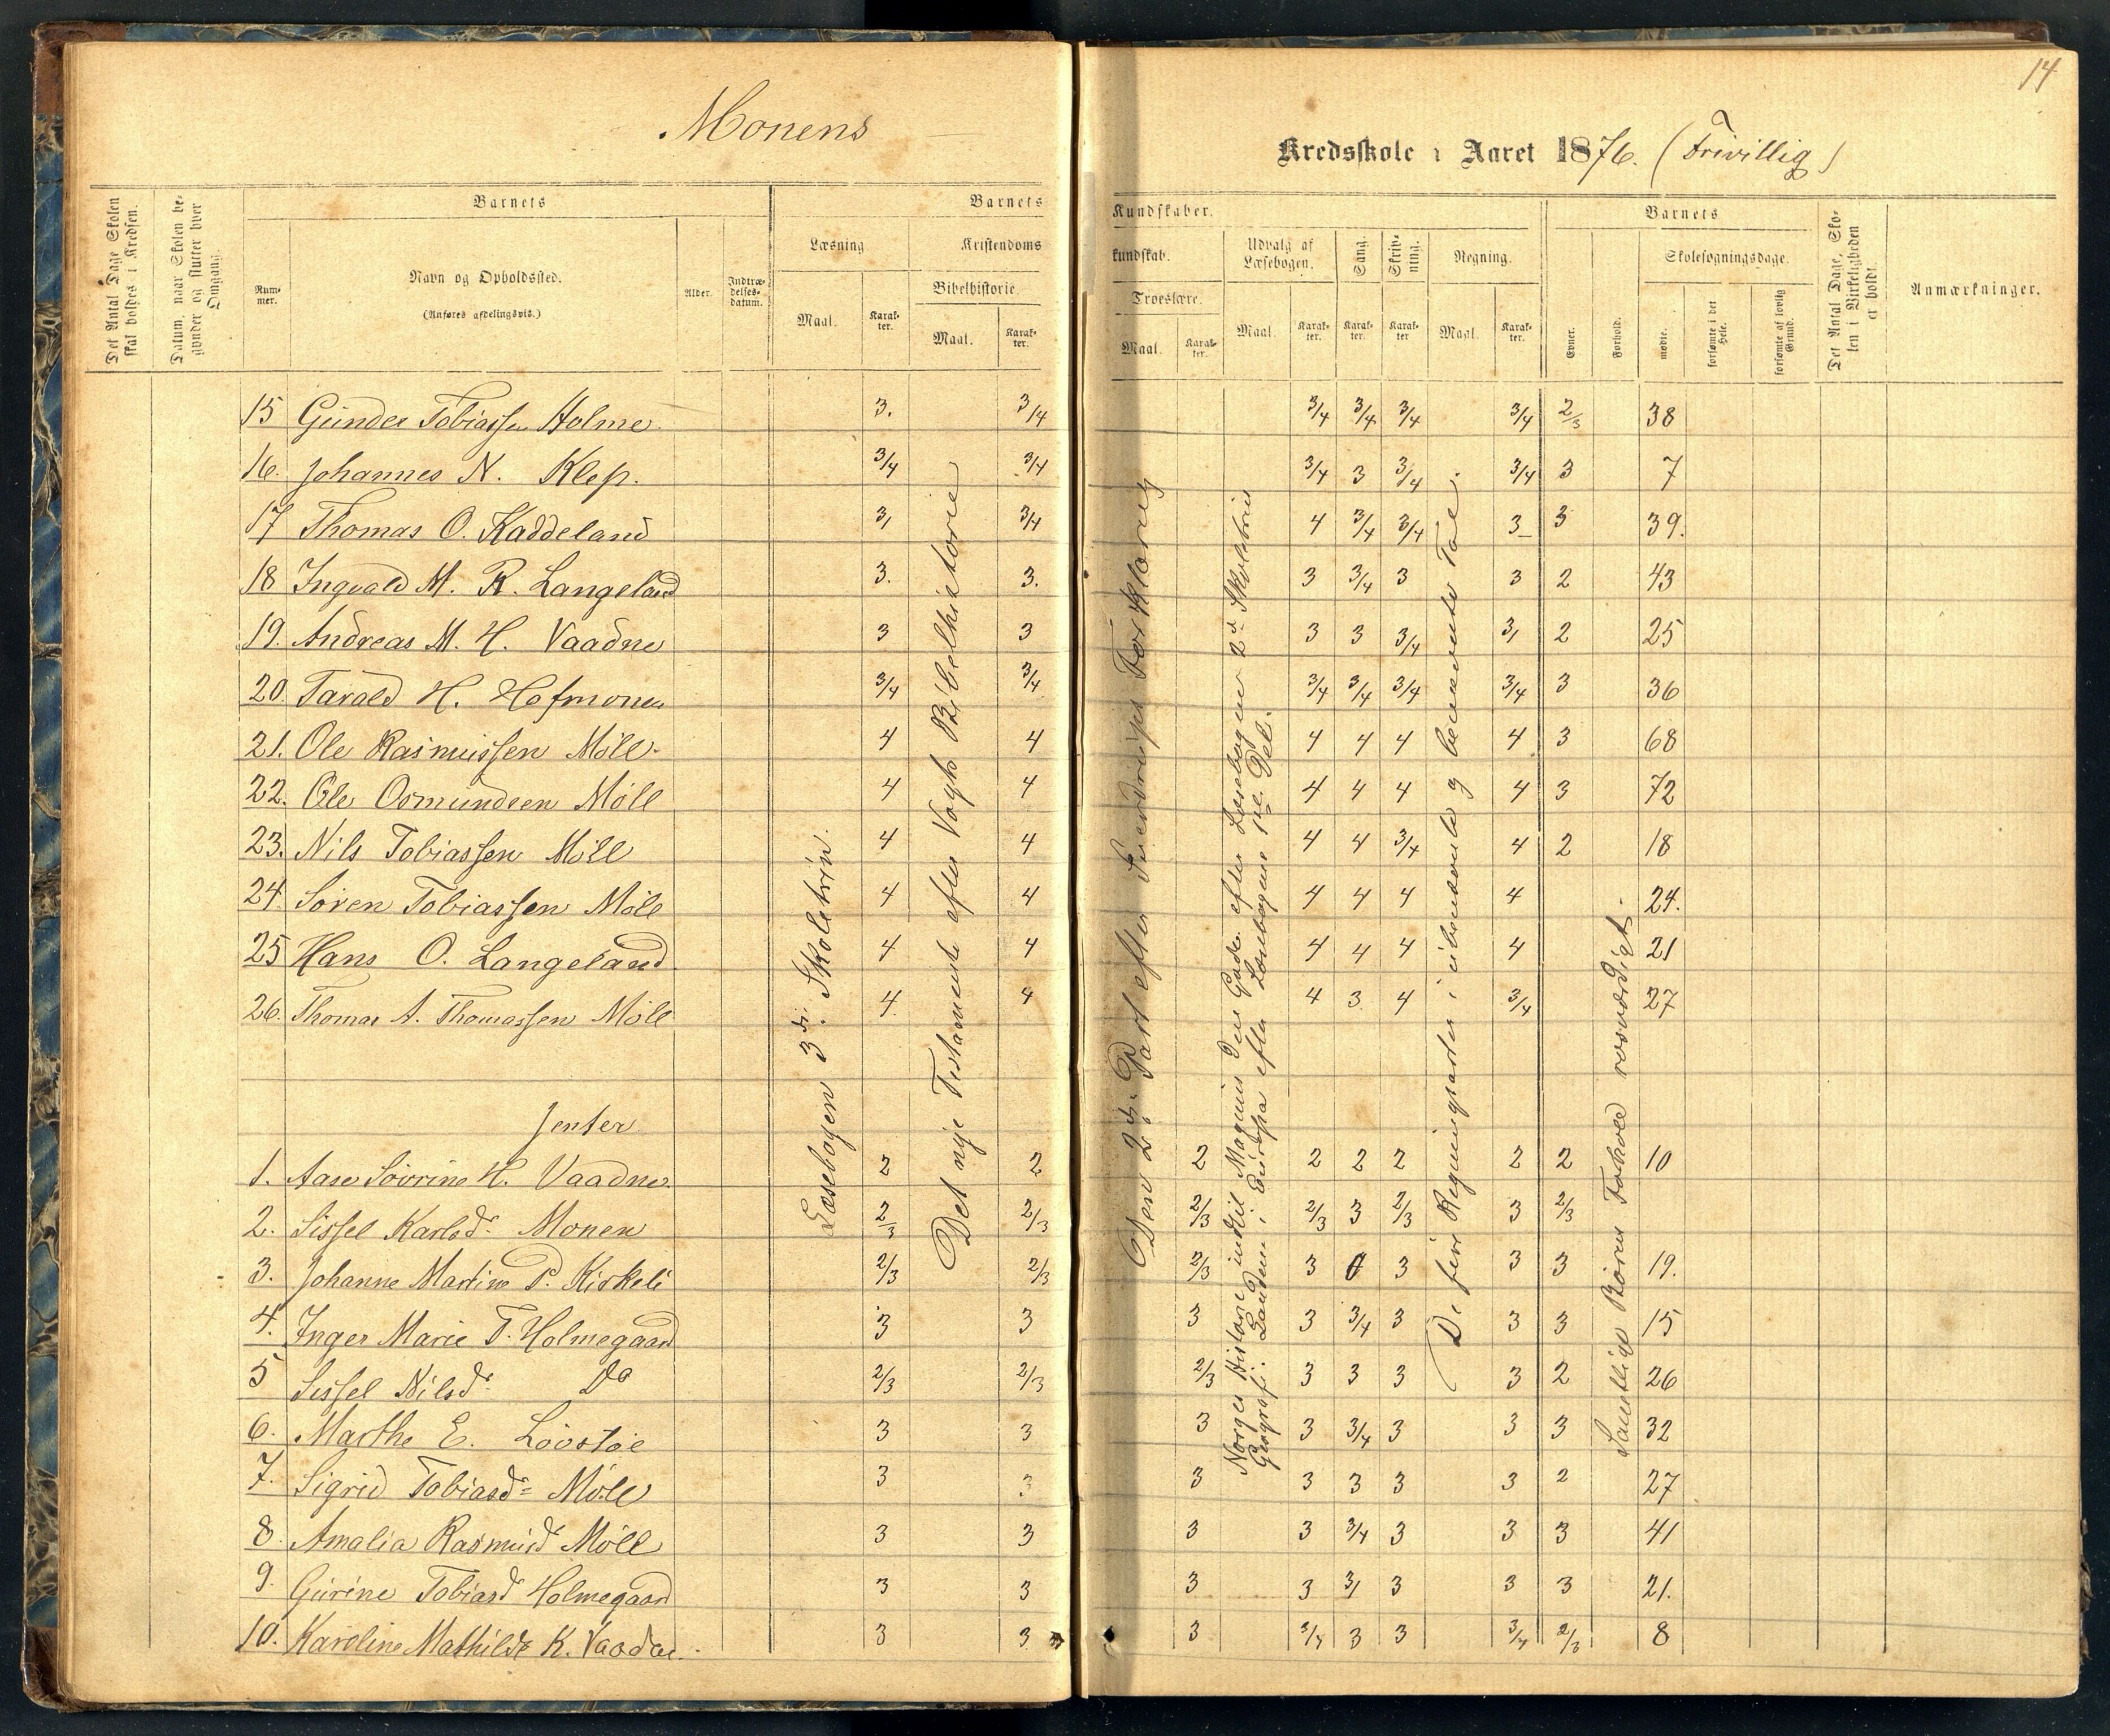 14
Monens
Kredsskole i Aaret 1876. (Frivillig)
Det Antal Dage Skolen skal holdes i Kredsen.
Datum, naar Skolen begynder og slutter hver Omgang.
Barnets
Num-mer.
Navn og Opholdssted.
(Anføres afdelingsvis.)
Alder.
Indtræ-delses-datum.
Barnets Kundskaber.
Læsning
Maal.
Karak-ter.
Kristendomskundskab.
Bibelhistorie.
Maal.
Karak-ter.
Troeslære.
Maal.
Karak-ter.
Udvalg af Læsebogen.
Maal.
Karak-ter.
Sang.
Karak-ter.
Skriv-ning.
Karak-ter
Regning.
Maal.
Karak-ter.
Barnets
Evner.
Forhold.
Skolesøgningsdage.
mødte.
forsømte i det Hele.
forsømte af lovlig Grund.
Det Antal Dage, Skolen i Virkeligheden er holdt.
Anmærkninger.
15 Gunder Tobiassen Holme 3. 3/4 3/4 3/4 3/4 3/4 2/3 38
16. Johannes N. Klep. 3/4 3/4 3/4 3 3/4 3/4 3 7
17 Thomas O. Kaddeland 3, 3/4 4 3/4 3/4 3 3 39.
18 Ingvald M. R. Langeland 3. 3. 3 3/4 3 3 2 43
19. Andreas M. H. Vaadne 3 3 3 3 3/4 3, 2 25
20. Tarald H. Hofmonen 3/4 3/4 3/4 3/4 3/4 3/4 3 36
21. Ole Rasmussen Möll 4 4 4 4 4 4 3 68
22. Ole Osmundsen Möll 4 4 4 4 4 4 3 72
23. Nils Tobiassen Möll 4 4 4 4 3/4 4 2 18
24. Sören Tobiassen Möll 4 4 4 4 4 4 24.
25 Hans O. Langeland 4 4 4 4 4 4 21
26. Thomas A. Thomassen Möll 4. 4 4 3 4 3/4 27
Jenter
1. Aase Sövrine H. Vaadne. 2 2 2 2 2 2 2 2 10
2. Sissel Karlsd. Monen 2/3 2/3 2/3 2/3 3 2/3 3 2/3
3. Johanne Martine P. Kirkeli 2/3 2/3 2/3 3 0 3 3 3 19.
4. Inger Marie T. Holmegaard 3 3 3 3 3/4 3 3 3 15
5 Sissel Nilsd. Do 2/3 2/3 2/3 3 3 3 3 2 26
6. Marthe E. Lövstöe 3 3 3 3 3/4 3 3 3 32
7. Sigrid Tobiasd. Möll 3 3 3 3 3 3 3 2 27
8. Amalia Rasmusd Möll 3 3 3 3 3/4 3 3 3 41
9. Gurine Tobiasd Holmegaard 3 3 3 3 3/ 3 3 3 21.
10. Karoline Mathilde K. Vaadne. 3 3 3 3/4 3 3 3/4 2/3 8
Læsebogen 3die Skoletrin.
Det nye Testamente efter Vogts Bibelhistorie
Den 2den Part efter Sverdrups Forklaring
Norges Historie indtil Magnus den Gode efter Læsebogens 2det Skoletrin
Geografi: Landene i Europa efter Læsebogens 1ste Del.
De fire Regningsarter i ubenævnte og benævnte Tal.
Samtlige Börns Forhold rosværdigt.